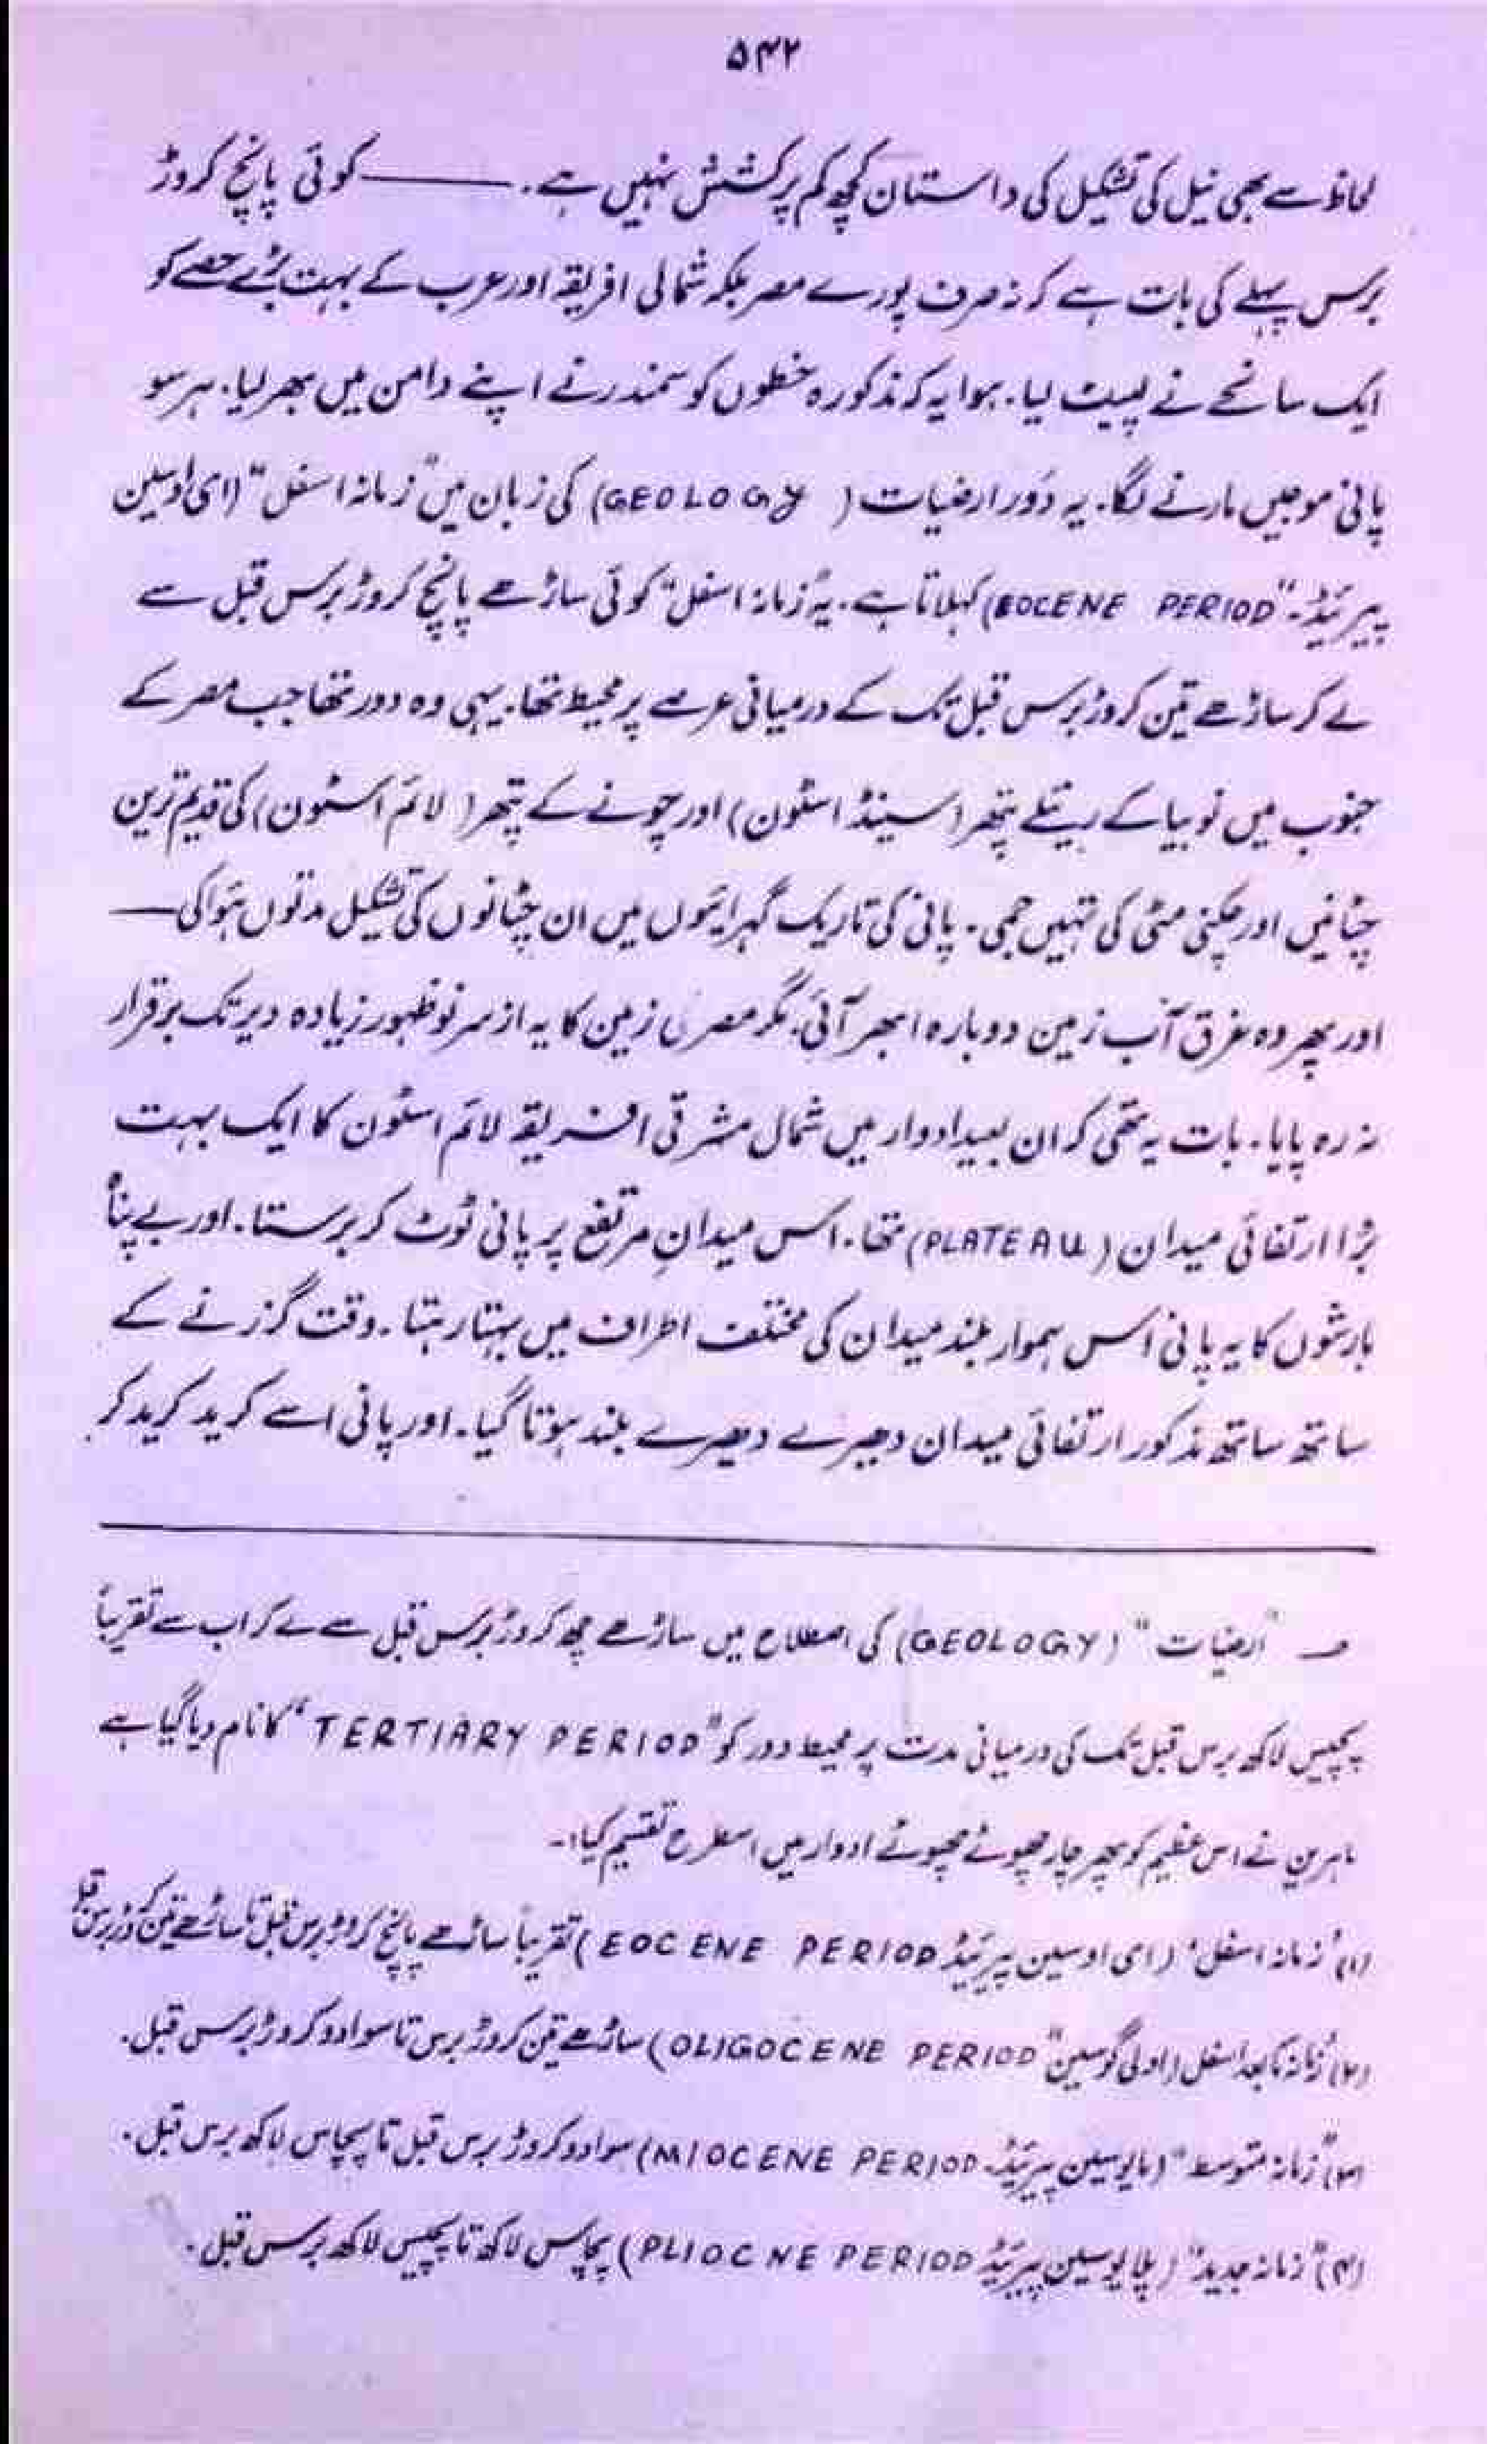 ۵۴۲
لحاظ سے بھی نیل کی تشکیل کی داستان کچھ کم پرکشش نہیں ہے ۔ ——— کوئی پانچ کروڑ
برس پہلے کی بات ہے کہ نہ صرف پورے مصر بلکہ شمالی افریقہ اور عرب کے بہت بڑے حصے کو
ایک سانحے نے لپیٹ لیا ۔ ہوا یہ کہ مذکورہ خطوں کو سمندر نے اپنے دامن میں بھر لیا ۔ ہر سو
پانی موجیں مارنے لگا ۔ یہ دَور ارضیات ( GEOLOGY) کی زبان میں "زمانہ اسفل" (ای اوسین
پیریَڈ ۔ "EOCENE PERIOD) کہلاتا ہے ۔ یہ "زمانہ اسفل" کوئی ساڑھے پانچ کروڑ برس قبل سے
لے کر ساڑھے تین کروڑ برس قبل تک کے درمیانی عرصے پر محیط تھا ۔ یہی وہ دور تھا جب مصر کے
جنوب میں نوبیا کے ریتلے پتھر (سینڈ اسٹون) اور چونے کے پتھر ( لائم اسٹون) کی قدیم ترین
چٹانیں اور چکنی مٹی کی تہیں جمی ۔ پانی کی تاریک گہرائیوں میں ان چٹانوں کی تشکیل مدتوں ہوا کی —
اور پھر وہ غرق آب زمین دوبارہ ابھر آئی ۔ مگر مصر کی زمین کا یہ از سر نو ظہور زیادہ دیر تک برقرار
نہ رہ پایا ۔ بات یہ تھی کہ ان بعید ادوار میں شمال مشرقی افریقہ لائم اسٹون کا ایک بہت
بڑا ارتفائی میدان (PLATEAU) تھا ۔ اس میدانِ مرتفع پر پانی ٹوٹ کر برستا ۔ اور بے پناہ
بارشوں کا یہ پانی اس ہموار بلند میدان کی مختلف اطراف میں بہتا رہتا ۔ وقت گزرنے کے
ساتھ ساتھ مذکور ارتفائی میدان دھیرے دھیرے بلند ہوتا گیا ۔ اور پانی اسے کرید کرید کر
"ارضیات" (GEOLOGY) کی اصطلاح میں ساڑھے چھ کروڑ برس قبل سے لے کر اب سے تقریباً
پچیس لاکھ برس قبل تک کی درمیانی مدت پر محیط دور کو "TERTIARY PERIOD" کا نام دیا گیا ہے
ماہرین نے اس عظیم کو پھر چار چھوٹے چھوٹے ادوار میں اسطرح تقسیم کیا :۔
(۱) "زمانہ اسفل" (ای اوسین پیریَڈ EOCENE PERIOD) تقریباً ساڑھے پانچ کروڑ برس قبل تا ساڑھے تین کروڑ برس قبل
(۲) "زمانہ مابعد اسفل (اولی گوسین" OLIGOCENE PERIOD) ساڑھے تین کروڑ برس تا سوا دو کروڑ برس قبل ۔
(۳) "زمانہ متوسط" (مایوسین پیریَڈ ۔ MIOCENE PERIOD) سوا دو کروڑ برس قبل تا پچاس لاکھ برس قبل ۔
(۴) "زمانہ جدید" ( پلایوسین پیریَڈ PLIOCNE PERIOD) پچاس لاکھ تا پچیس لاکھ برس قبل ۔